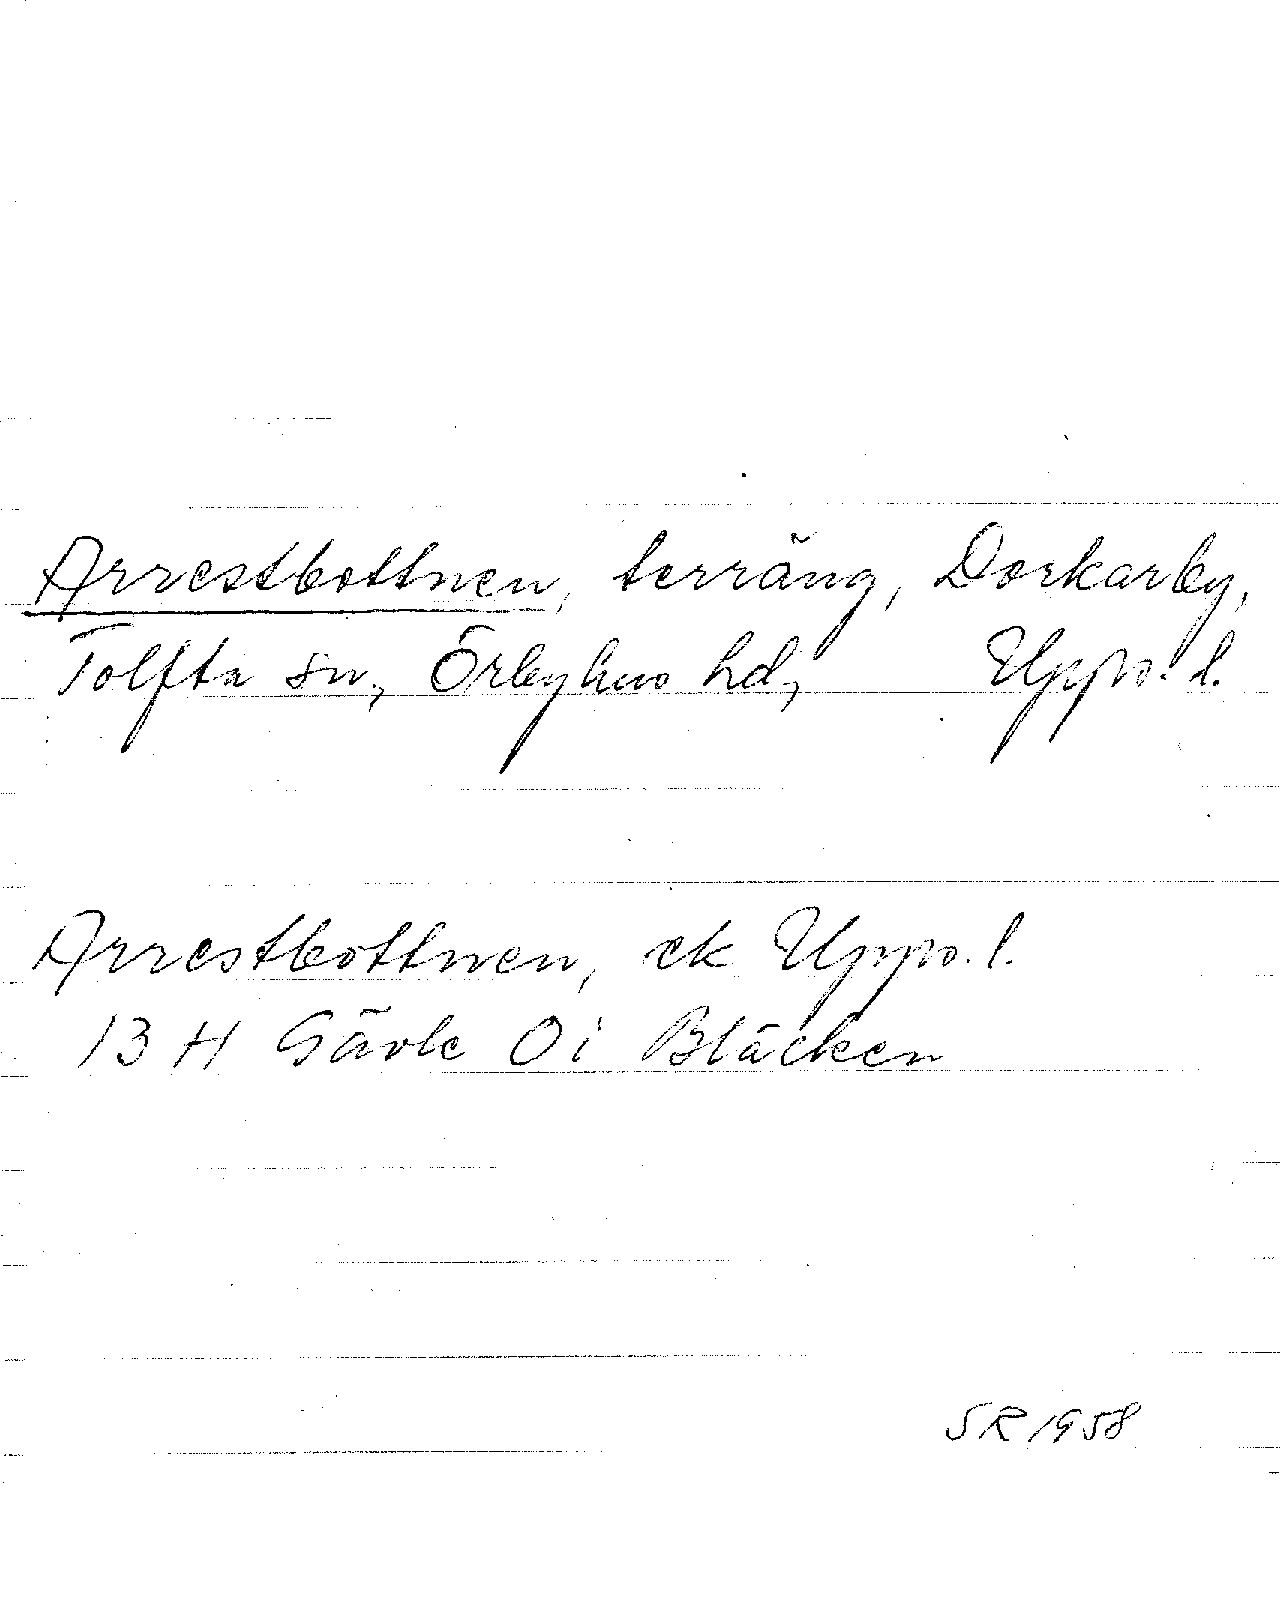 Arrestbottnen, terräng, Dorkarby,
Tolfta sn, Örbyhus hd, Upps. l.
Arrestbottnen, ek Upps. l.
13 H Gävle Oi Bläcken
SR 1958